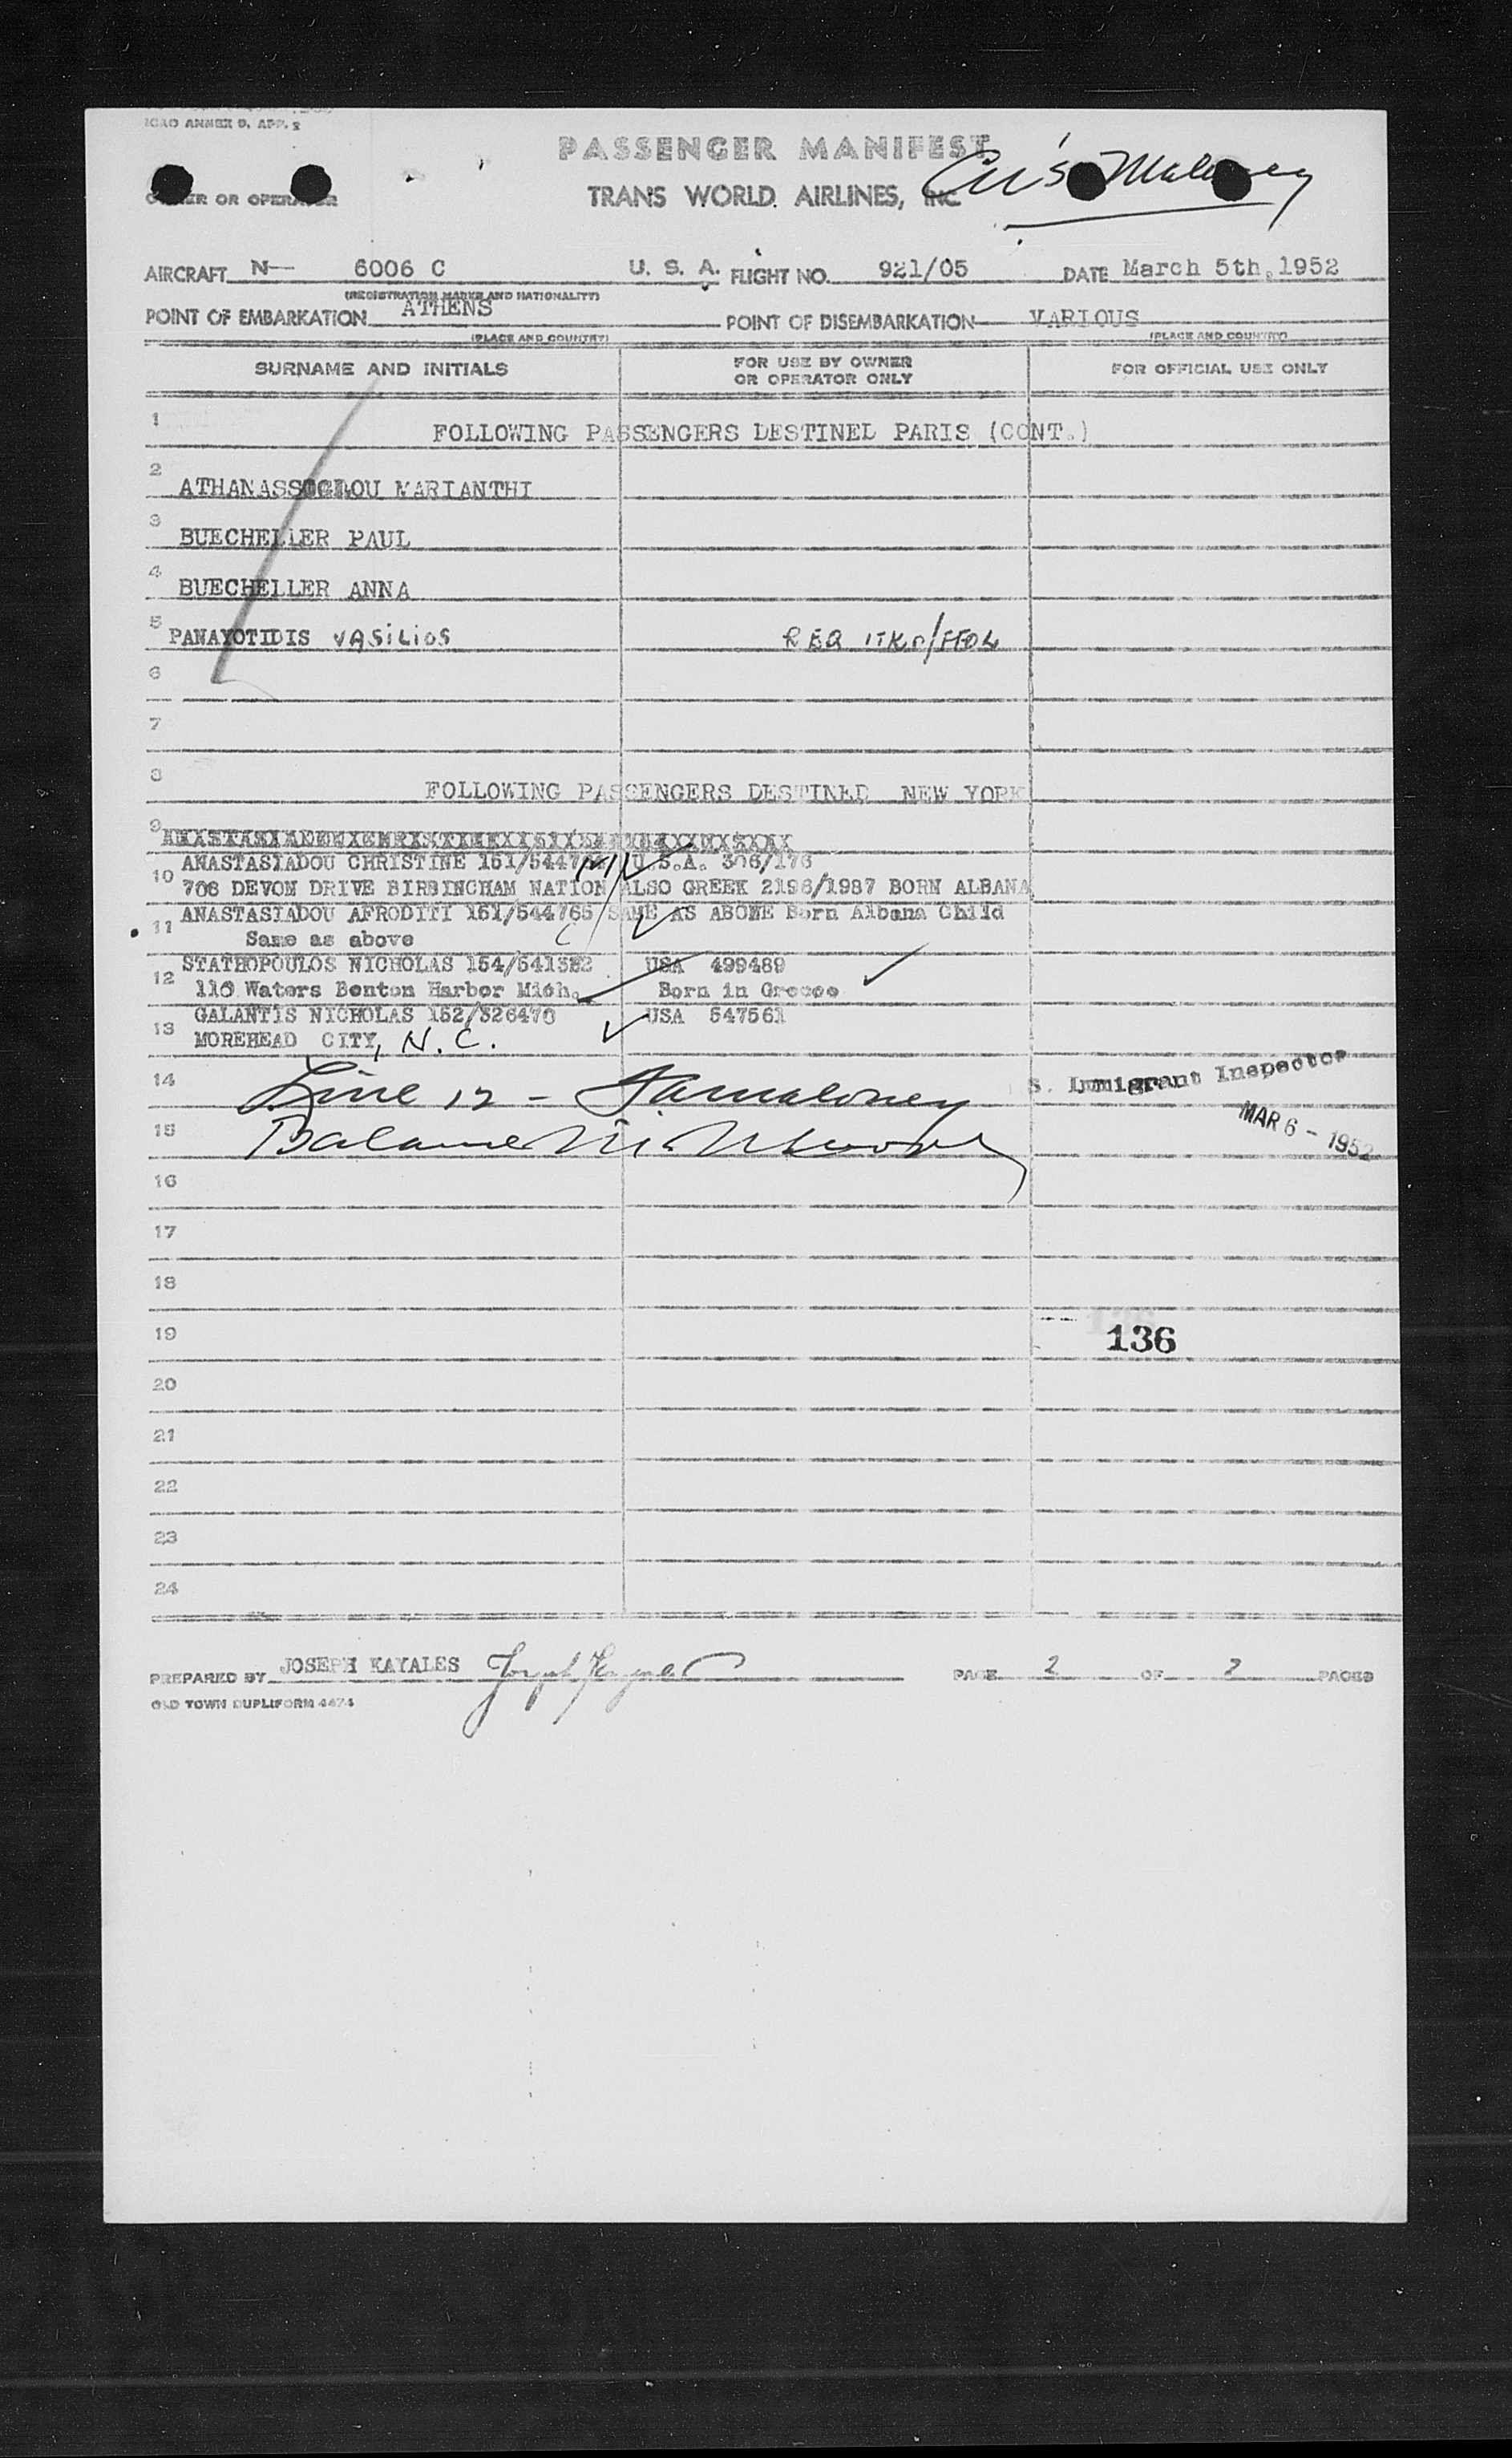 ICAO ANNEX 9, APP. 2
PASSENGER MANIFEST
Maloney
OWNER OR OPERATOR
TRANS WORLD AIRLINES, INC
AIRCRAFT N- 6006 C U. S. A. FLIGHT NO. 921/05 DATE March 5th, 1952
(REGISTRATION MARKS AND NATIONALITY)
POINT OF EMBARKATION ATHENS POINT OF DISEMBARKATION VARIOUS
(PLACE AND COUNTRY) (PLACE AND COUNTRY)
SURNAME AND INITIALS FOR USE BY OWNER OR OPERATOR ONLY FOR OFFICIAL USE ONLY
1 FOLLOWING PASSENGERS DESTINED PARIS (CONT.)
2 ATHANASSOGLOU MARIANTHI
3 BUECHELLER PAUL
4 BUECHELLER ANNA
5 PANAYOTIDIS VASILIOS REQ
6
7
8 FOLLOWING PASSENGERS DESTINED NEW YORK
9
ANASTASIADOU CHRISTINE U.S.A. 306/176
10 706 DEVON DRIVE BIRBINGHAM NATION ALSO GREEK 2198/1987 BORN ALBANA
ANASTASIADOU AFRODITI 151/544765 SAME AS ABOVE Born Albana Child
11 Same as above
STATHOPOULOS NICHOLAS USA 499489
12 110 Waters Benton Harbor Mich. Born in Greece
GALANTIS NICHOLAS 152/326470 USA 547561
13 MOREHEAD CITY, N.C.
14 Line 12 - Maloney
S. Immigrant Inspector
MAR 6 - 1952
15 Balance
16
17
18
19 136
20
21
22
23
24
PREPARED BY JOSEPH KAYALES PAGE 2 OF 2 PAGES
OLD TOWN DUPLIFORM 4474